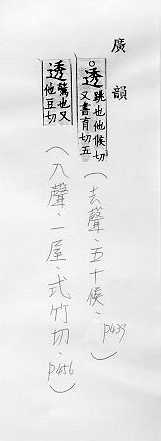 廣韻
○透跳也他候切又書育切五
(去聲、五十候、p439)
透驚也又他豆切
(入聲、一屋、式竹切、p456)